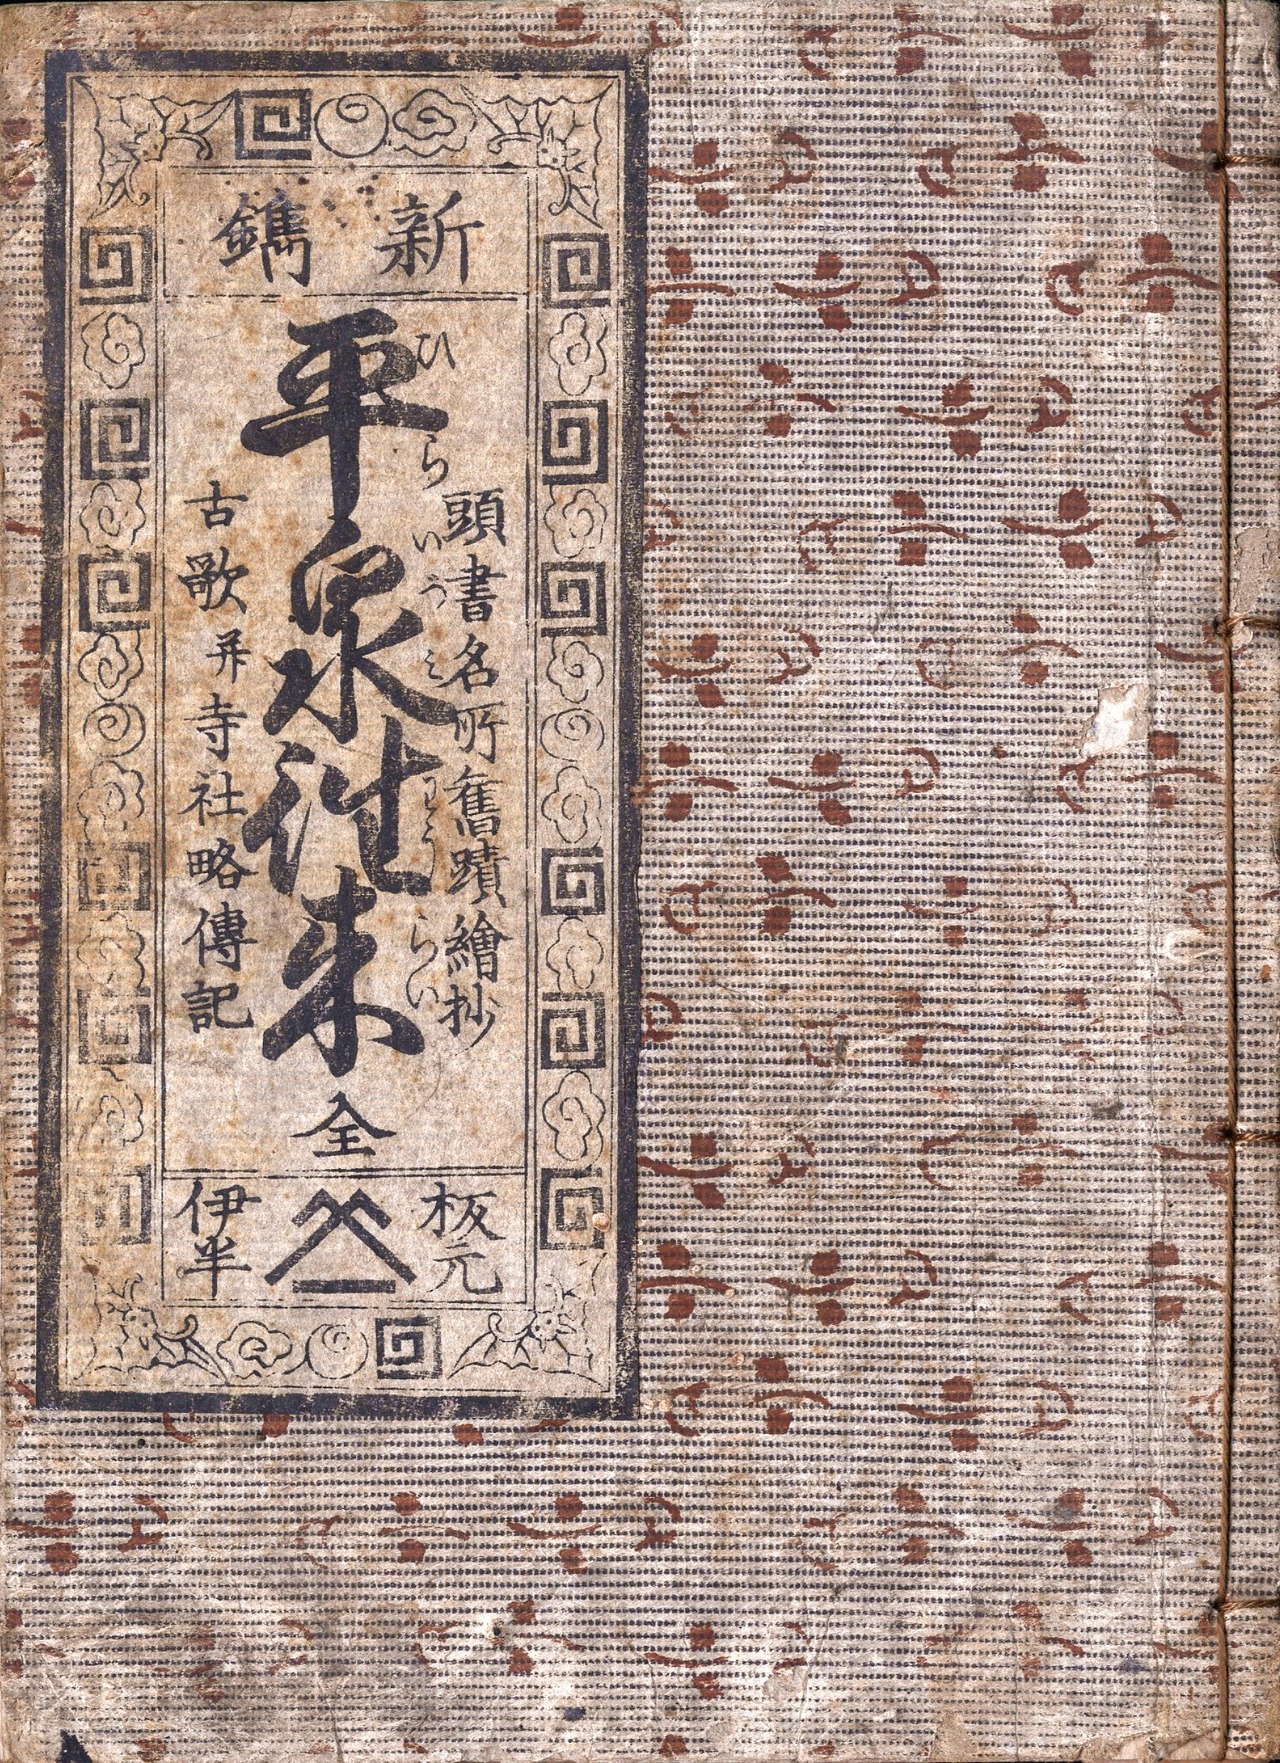 新鐫
頭書名所舊蹟繪抄
平泉往来 全
ひらいづみわうらい
古歌并寺社略傳記
板元
伊半